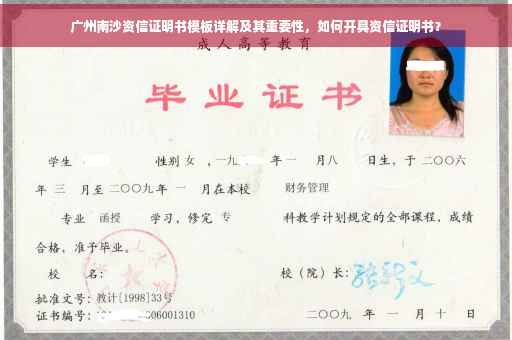 广州南沙资信证明书模板详解及其重要性，如何开具资信证明书？
成人高等教育
毕业证书
学生 性别 女 ，一九 年 一 月八 日生，于 二〇〇六
年 三 月至 二〇〇九 年 一 月在本校 财务管理
专业 函授 学习，修完 专 科教学计划规定的全部课程，成绩
合格，准予毕业。
校 名： 校（院）长：
批准文号：教计[1998]33号
证书编号： 06001310 二〇〇九 年 一 月 十 日